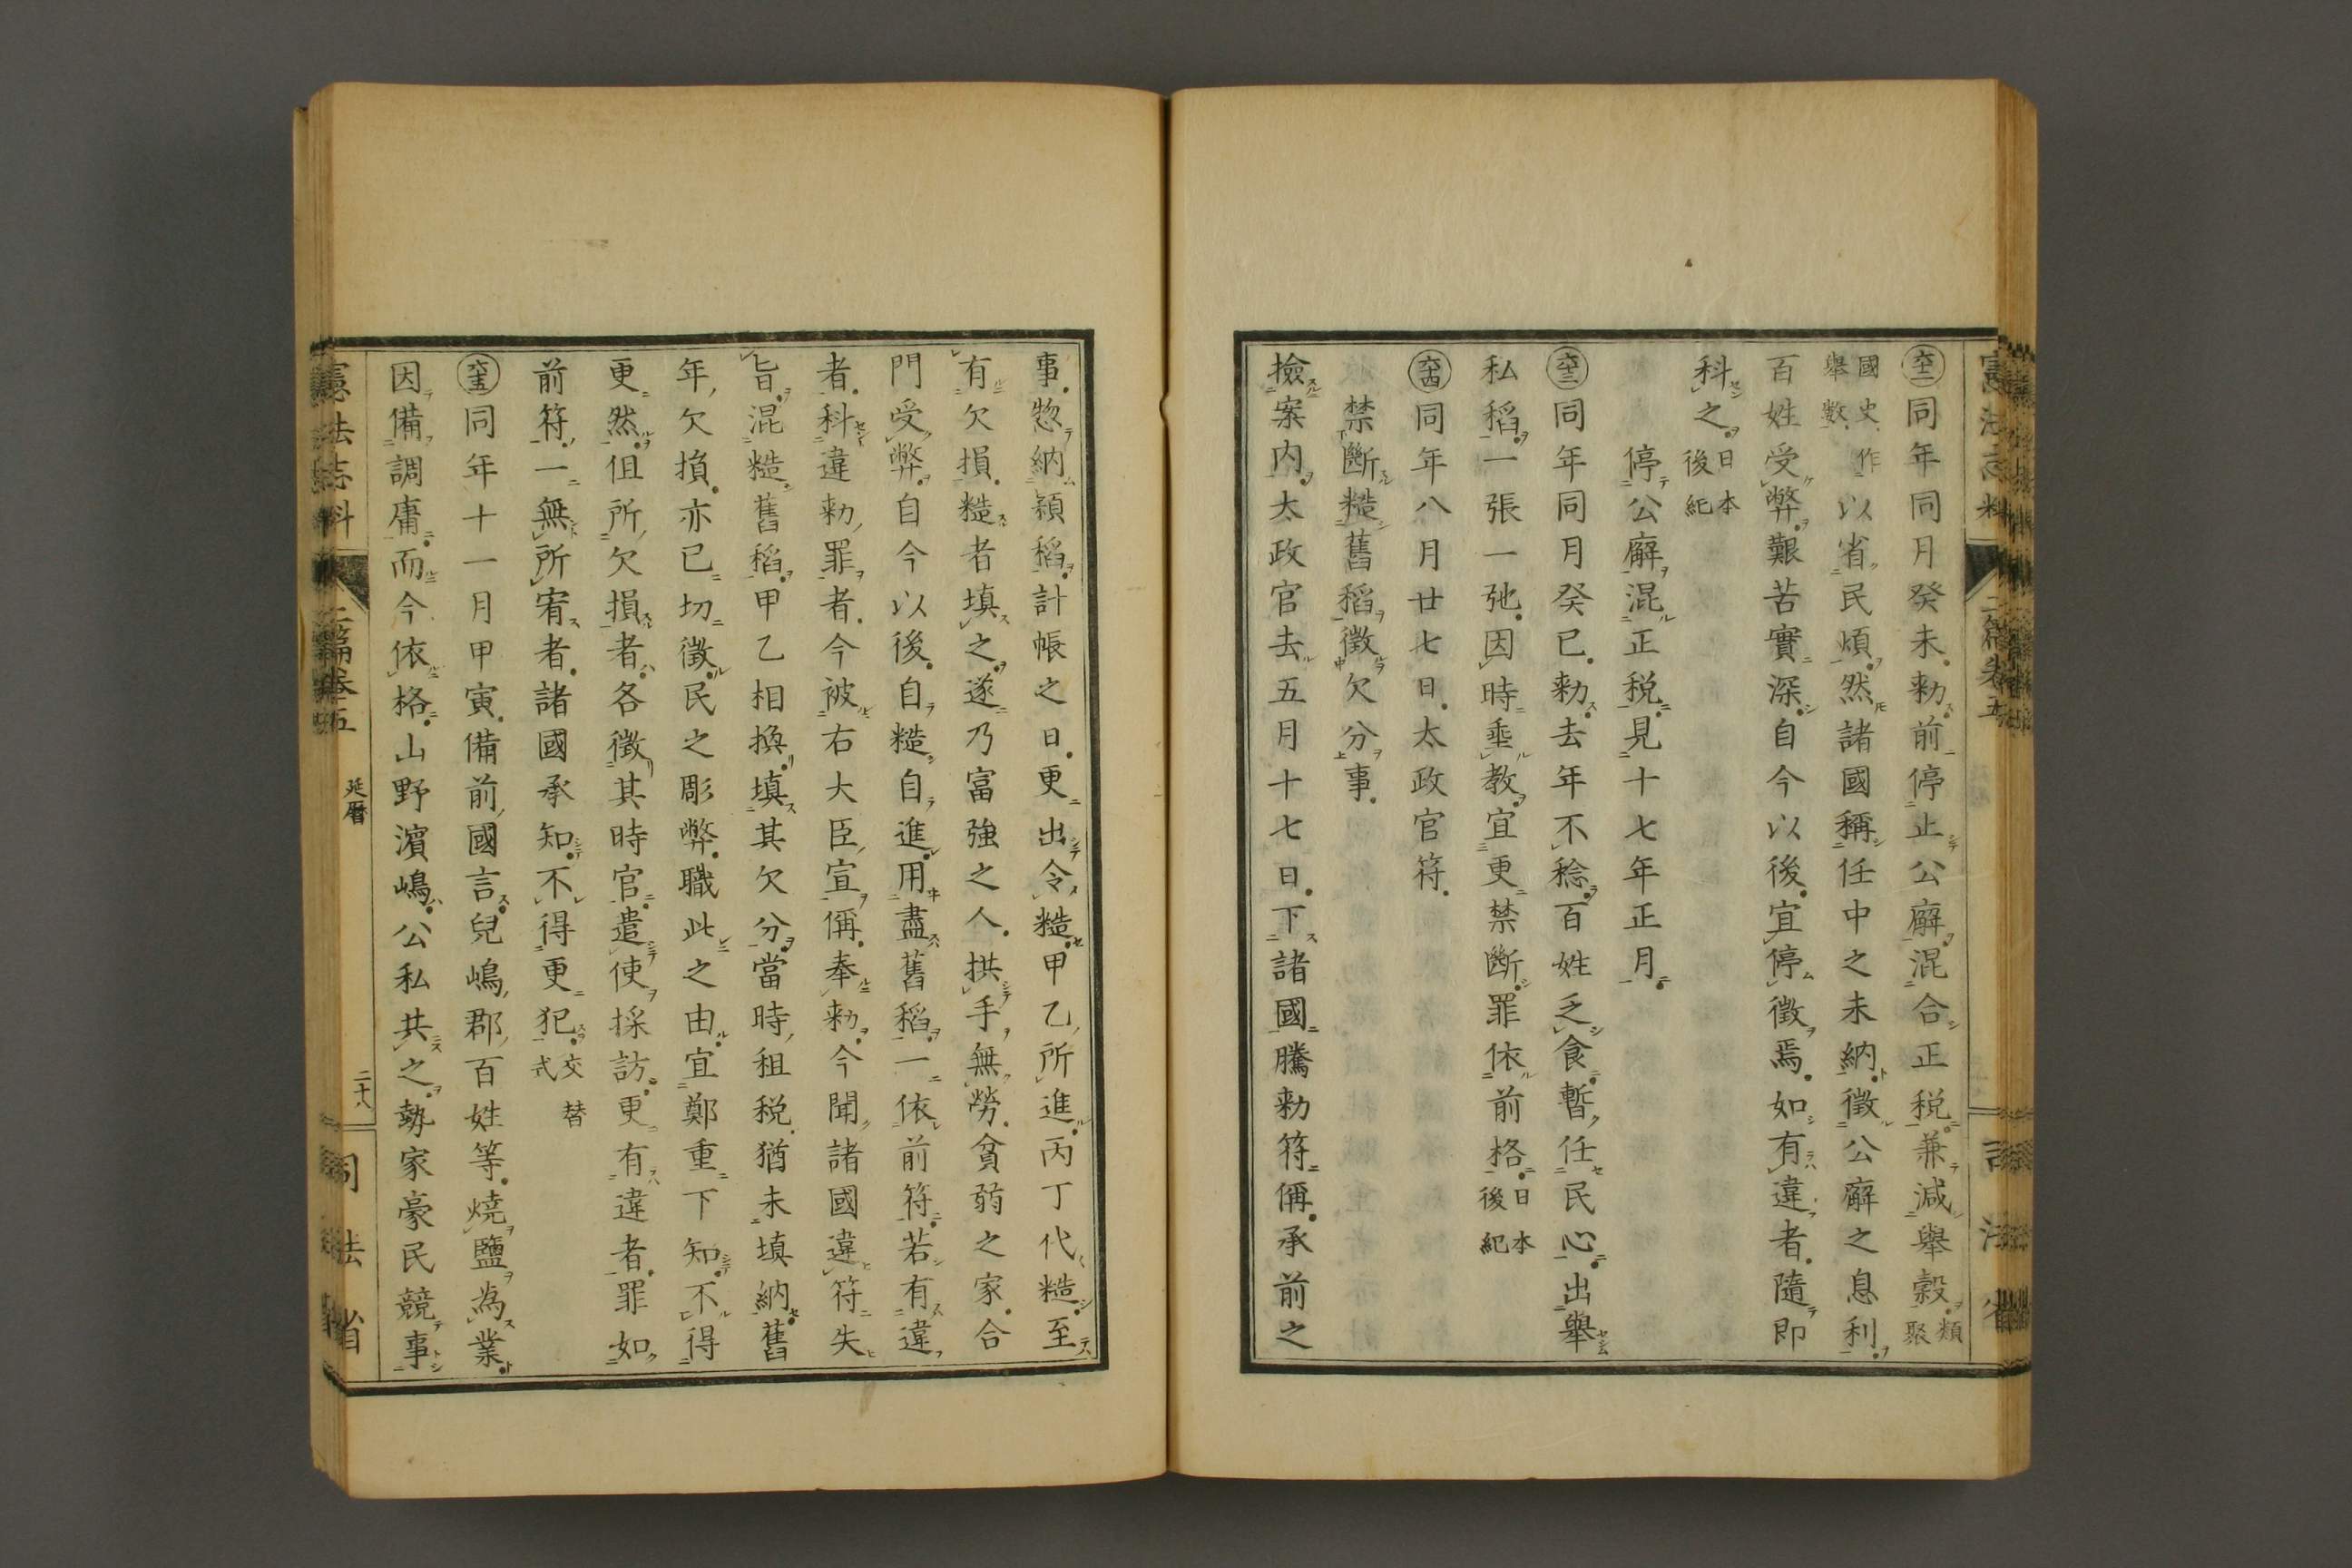 憲法志料
二篇卷五
司法省
六十二同年同月癸未。勅。前停止公廨混合正税。兼減舉穀。類聚
國史、作舉數、以省民煩。然諸國稱任中之未納。徵公廨之息利。
百姓受弊。艱苦實深。自今以後。宜停徵焉。如有違者。隨即
科之。日本後紀
停公廨混正税。見十七年正月。
六十三同年同月癸巳。勅。去年不稔。百姓乏食。暫任民心。出舉
私稻。一張一弛。因時垂教。宜更禁斷。罪依前格。日本後紀
六十四同年八月廿七日。太政官符。
禁斷糙舊稻徵欠分事。
撿案内。太政官去五月十七日。下諸國騰勅符偁。承前之
事。惣納穎稻。計帳之日。更出令糙。甲乙所進。丙丁代糙。至
有欠損。糙者填之。遂乃富強之人。拱手無勞。貧弱之家。合
門受弊。自今以後。自糙自進。用盡舊稻。一依前符。若有違
者。科違勅罪者。今被右大臣宣偁。奉勅。今聞諸國違符失
旨。混糙舊稻。甲乙相換。填其欠分。當時租税。猶未填納。舊
年欠損。亦已切徵。民之彫弊。職此之由。宜鄭重下知。不得
更然。但所欠損者。各徵其時官。遣使採訪。更有違者。罪如
前符。一無所宥者。諸國承知。不得更犯。交替式
六十五同年十一月甲寅。備前國言。兒嶋郡百姓等。燒鹽為業。
因備調庸。而今依格。山野濱嶋。公私共之。勢家豪民競事
憲法志料
二篇卷五
延暦
二十八
司法省